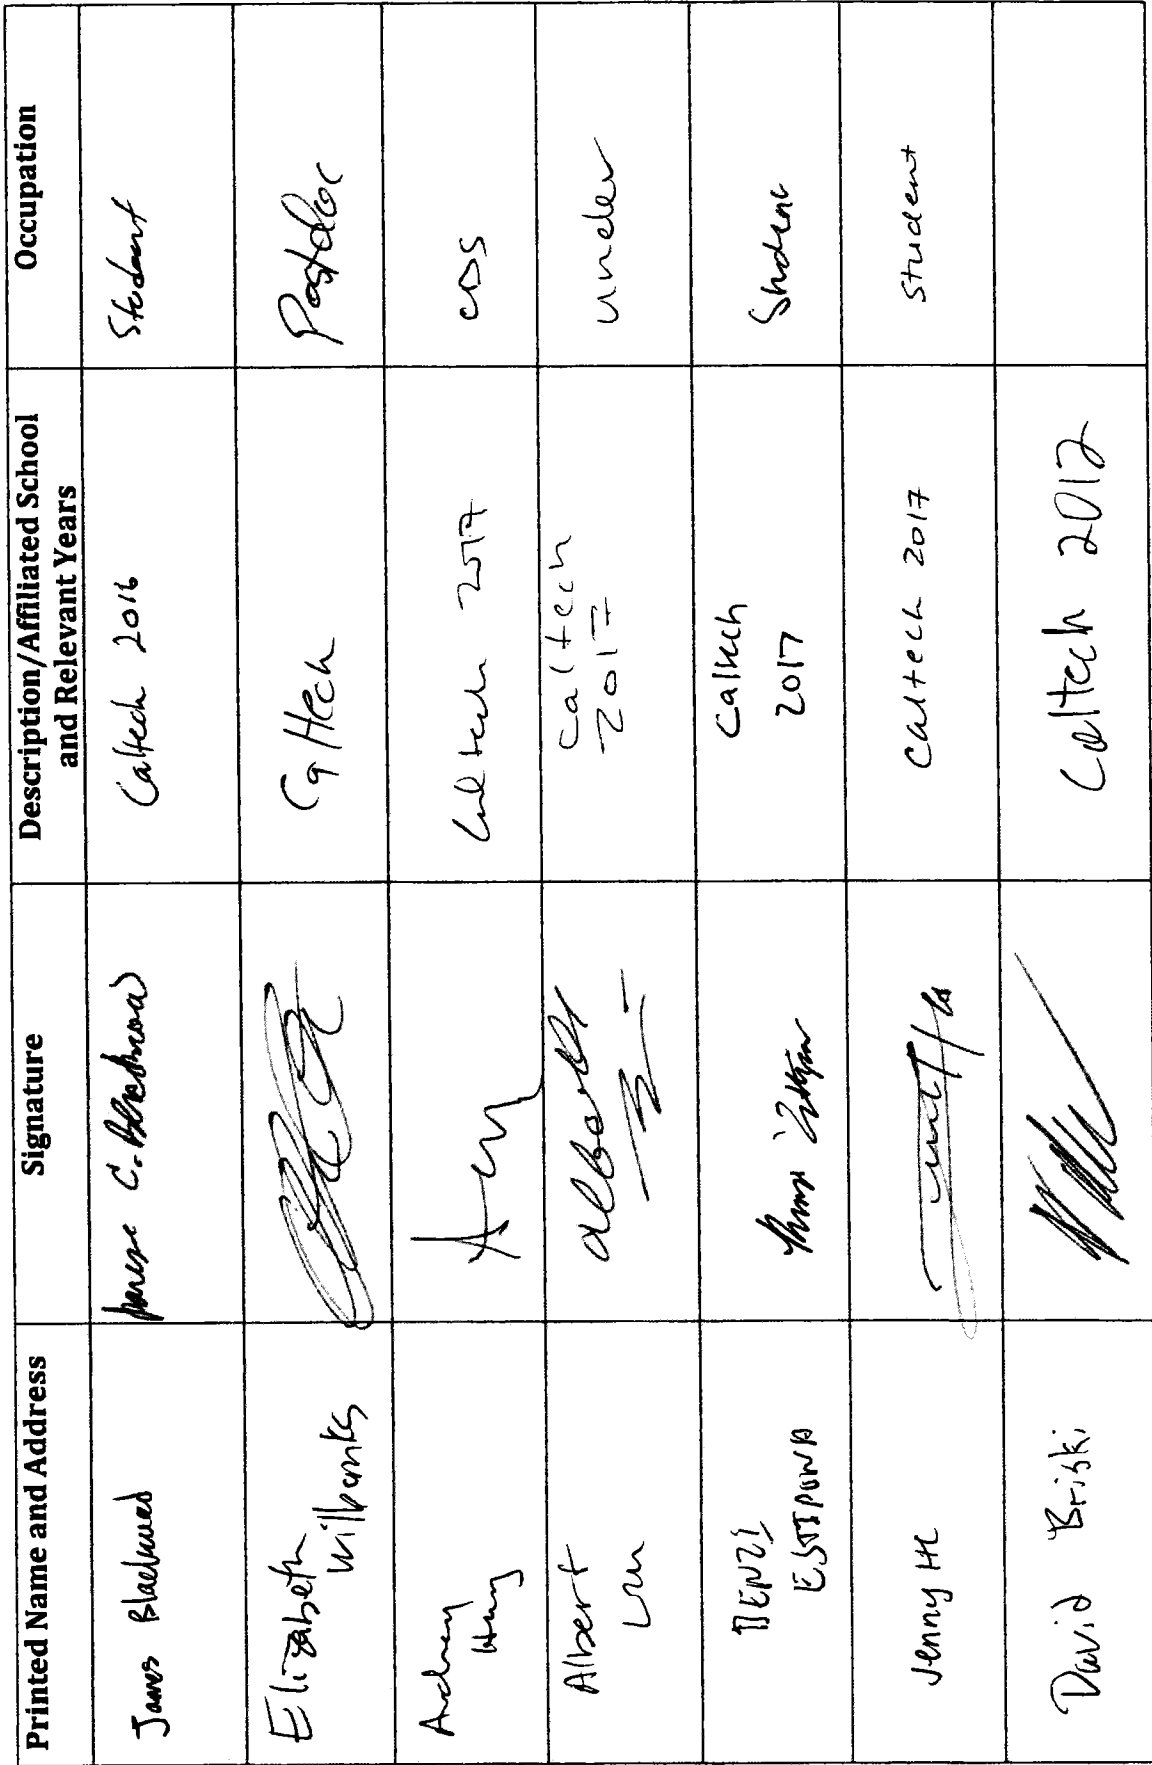 Printed Name and Address
Signature
Description/Affiliated School
and Relevant Years
Occupation
James Blackwood
James C. Blackwood
Caltech 2016
Student
Elizabeth
Wilbanks
Caltech
Postdoc
Caltech 2017
CDS
Albert
Albert
Caltech
2017
under
ESTIPONA
Caltech
2017
Student
Jenny He
Caltech 2017
student
David Briski
Caltech 2012